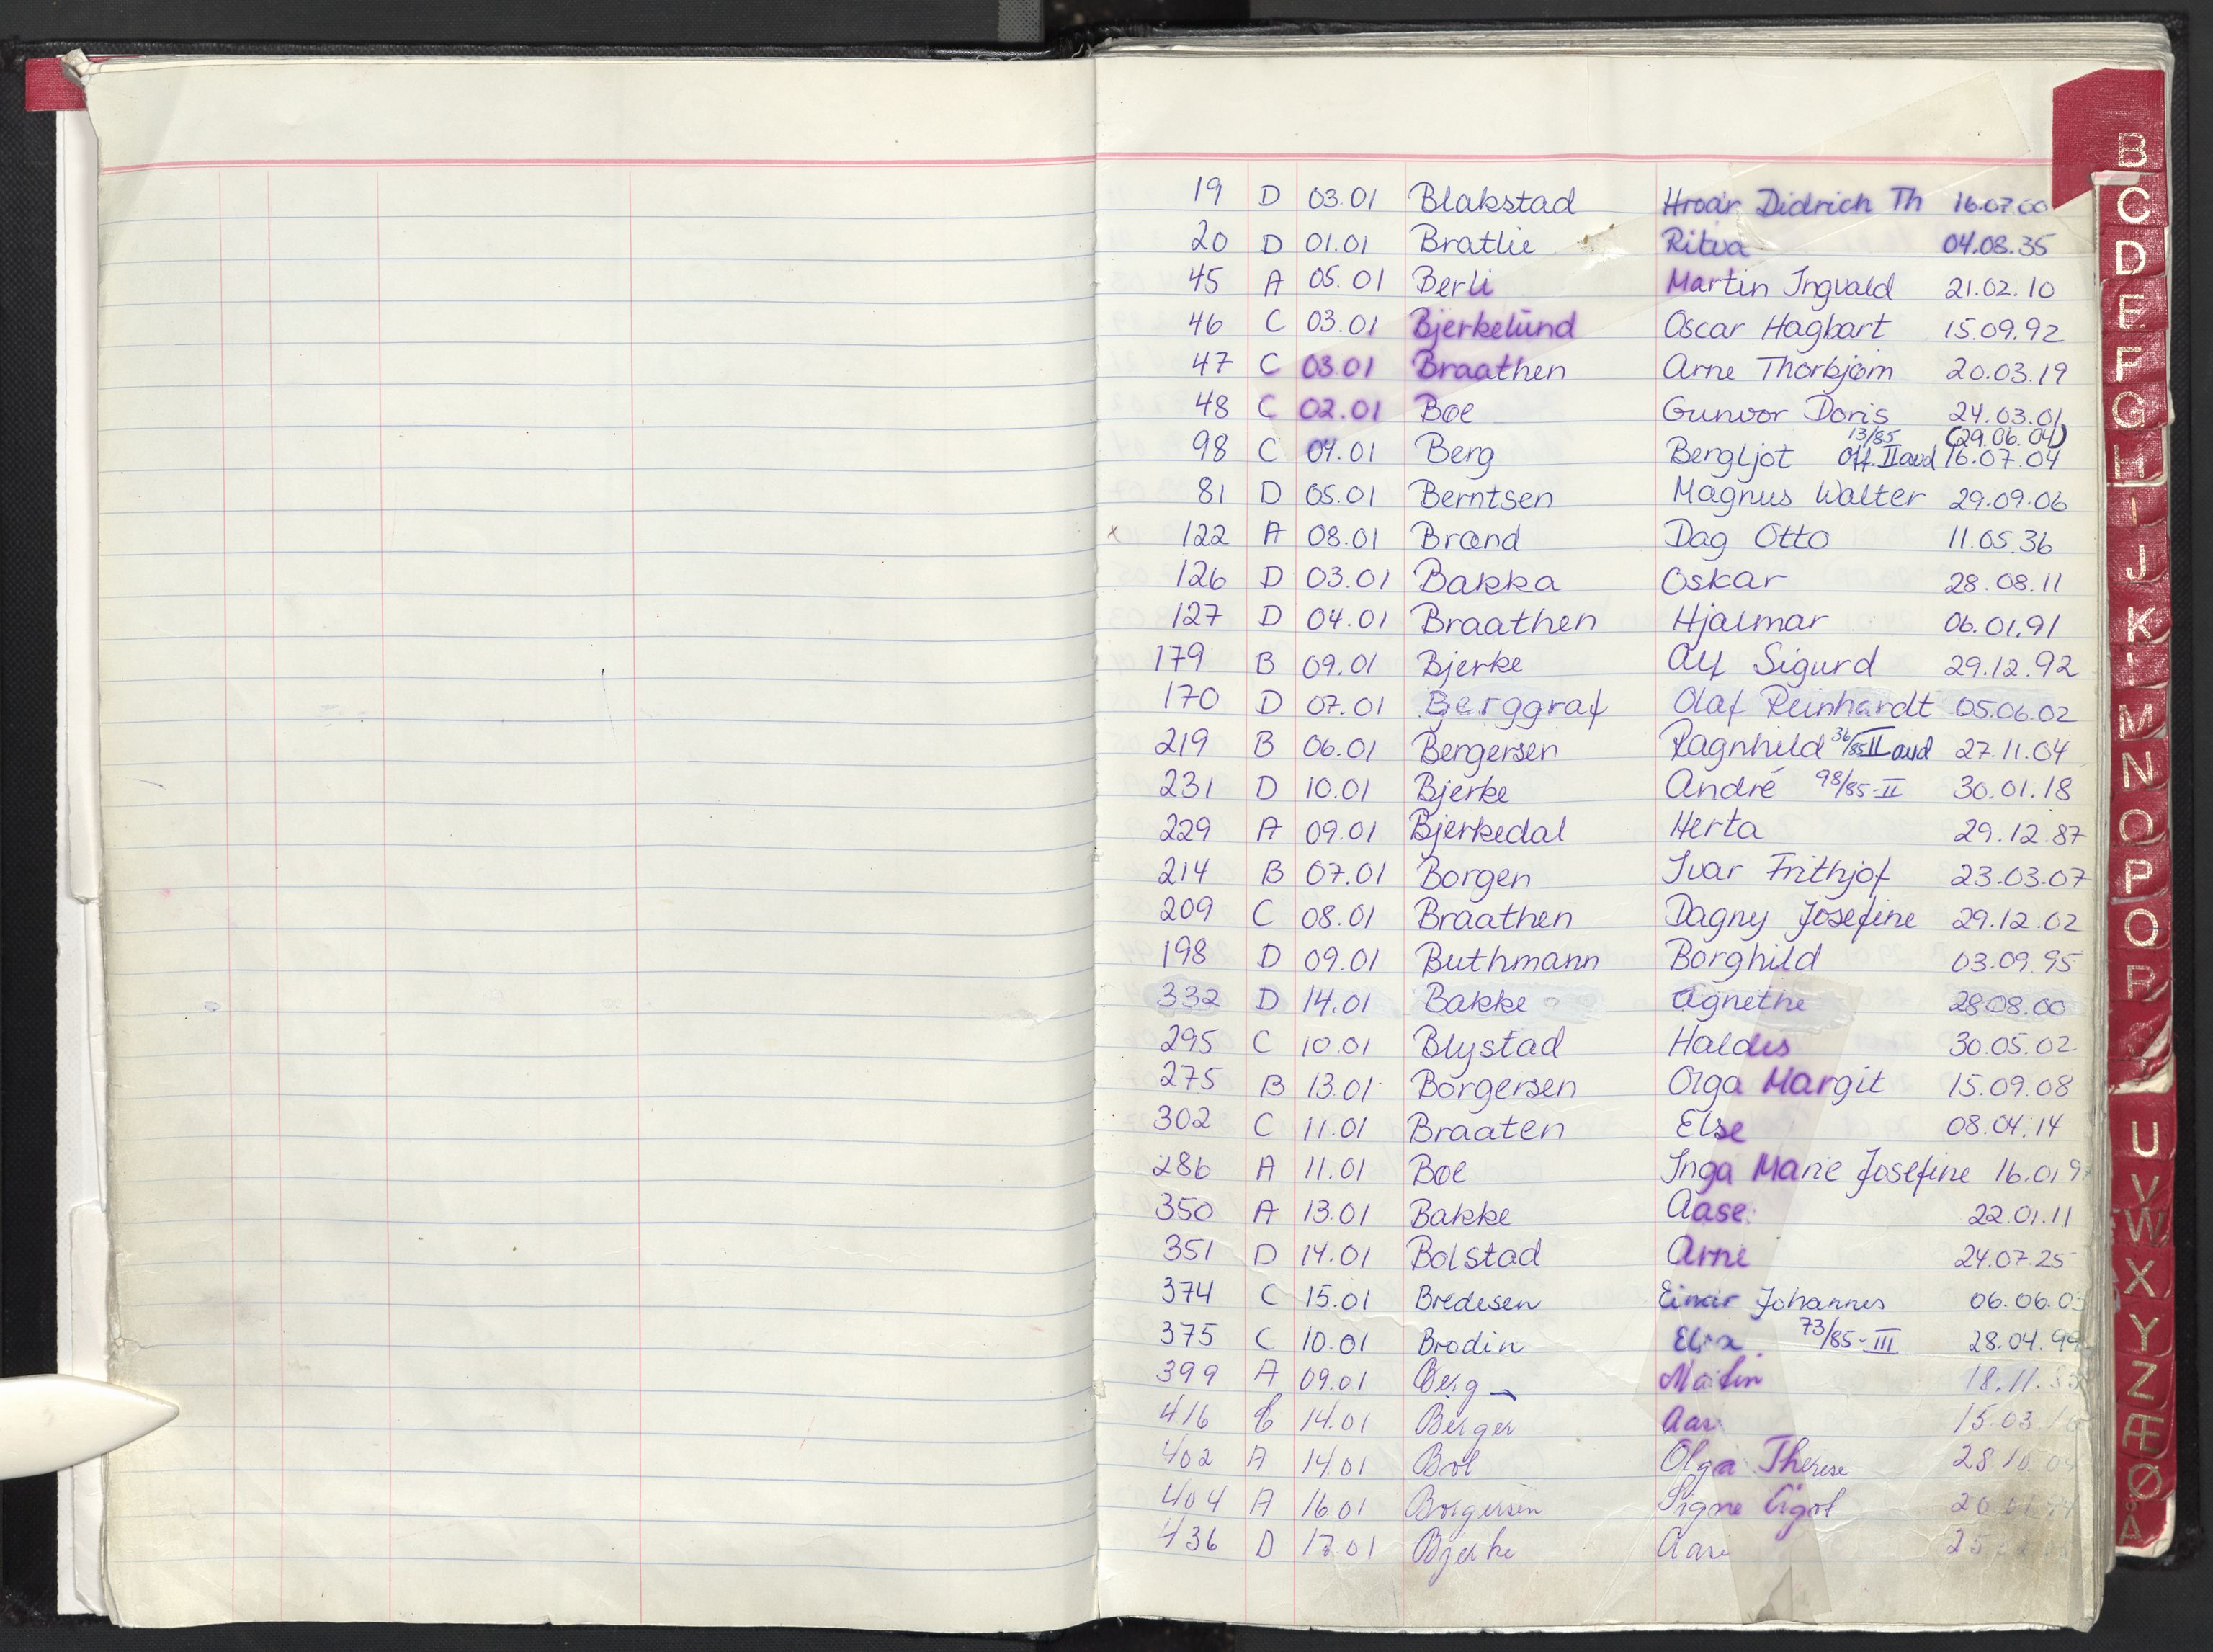 19 D 03.01 Blakstad Hroar Didrich Th 16.07.00
20 D 01.01 Bratlie Ritva 04.08.35
45 A 05.01 Berli Martin Ingvald 21.02.10
46 C 03.01 Bjerkelund Oscar Hagbart 15.09.92
47 C 03.01 Braathen Arne Thorbjørn 20.03.19
48 C 02.01 Boe Gunvor Doris 24.03.01
13/85 (29.06.04)
98 C 04.01 Berg Bergljot Off. II avd 16.07.04
81 D 05.01 Berntsen Magnus Walter 29.09.06
x 122 A 08.01 Brænd Dag Otto 11.05.36
126 D 03.01 Bakka Oskar 28.08.11
127 D 04.01 Braathen Hjalmar 06.01.91
179 B 09.01 Bjerke Alf Sigurd 29.12.92
170 D 07.01 Berggraf Olaf Reinhardt 05.06.02
219 B 06.01 Bergersen Ragnhild 36/85 II avd 27.11.04
231 D 10.01 Bjerke André 98/85-II 30.01.18
229 A 09.01 Bjerkedal Herta 29.12.87
214 B 07.01 Borgen Ivar Frithjof 23.03.07
209 C 08.01 Braathen Dagny Josefine 29.12.02
198 D 09.01 Buthmann Borghild 03.09.95
332 D 14.01 Bakke Agnethe 28.08.00
295 C 10.01 Blystad Haldis 30.05.02
275 B 13.01 Borgersen Olga Margit 15.09.08
302 C 11.01 Braaten Else 08.04.14
286 A 11.01 Boe Inga Marie Josefine 16.01
350 A 13.01 Bakke Aase 22.01.11
351 D 14.01 Bolstad Arne 24.07.25
374 C 15.01 Bredesen Einar Johannes 06.06
375 C 10.01 Brodin 73/85-III 28.04
399 A 09.01 Berg 18.11
416 14.01 Berger 15.03
402 A 14.01 Olga Therese 28
404 A 16.01 Borgersen Signe 20
436 D 17.01 Bjerke 25
B
C
D
E
F
G
H
I
J
K
M
N
O
P
Q
R
U
V
W
X
Y
Z
Æ
Ø
Å